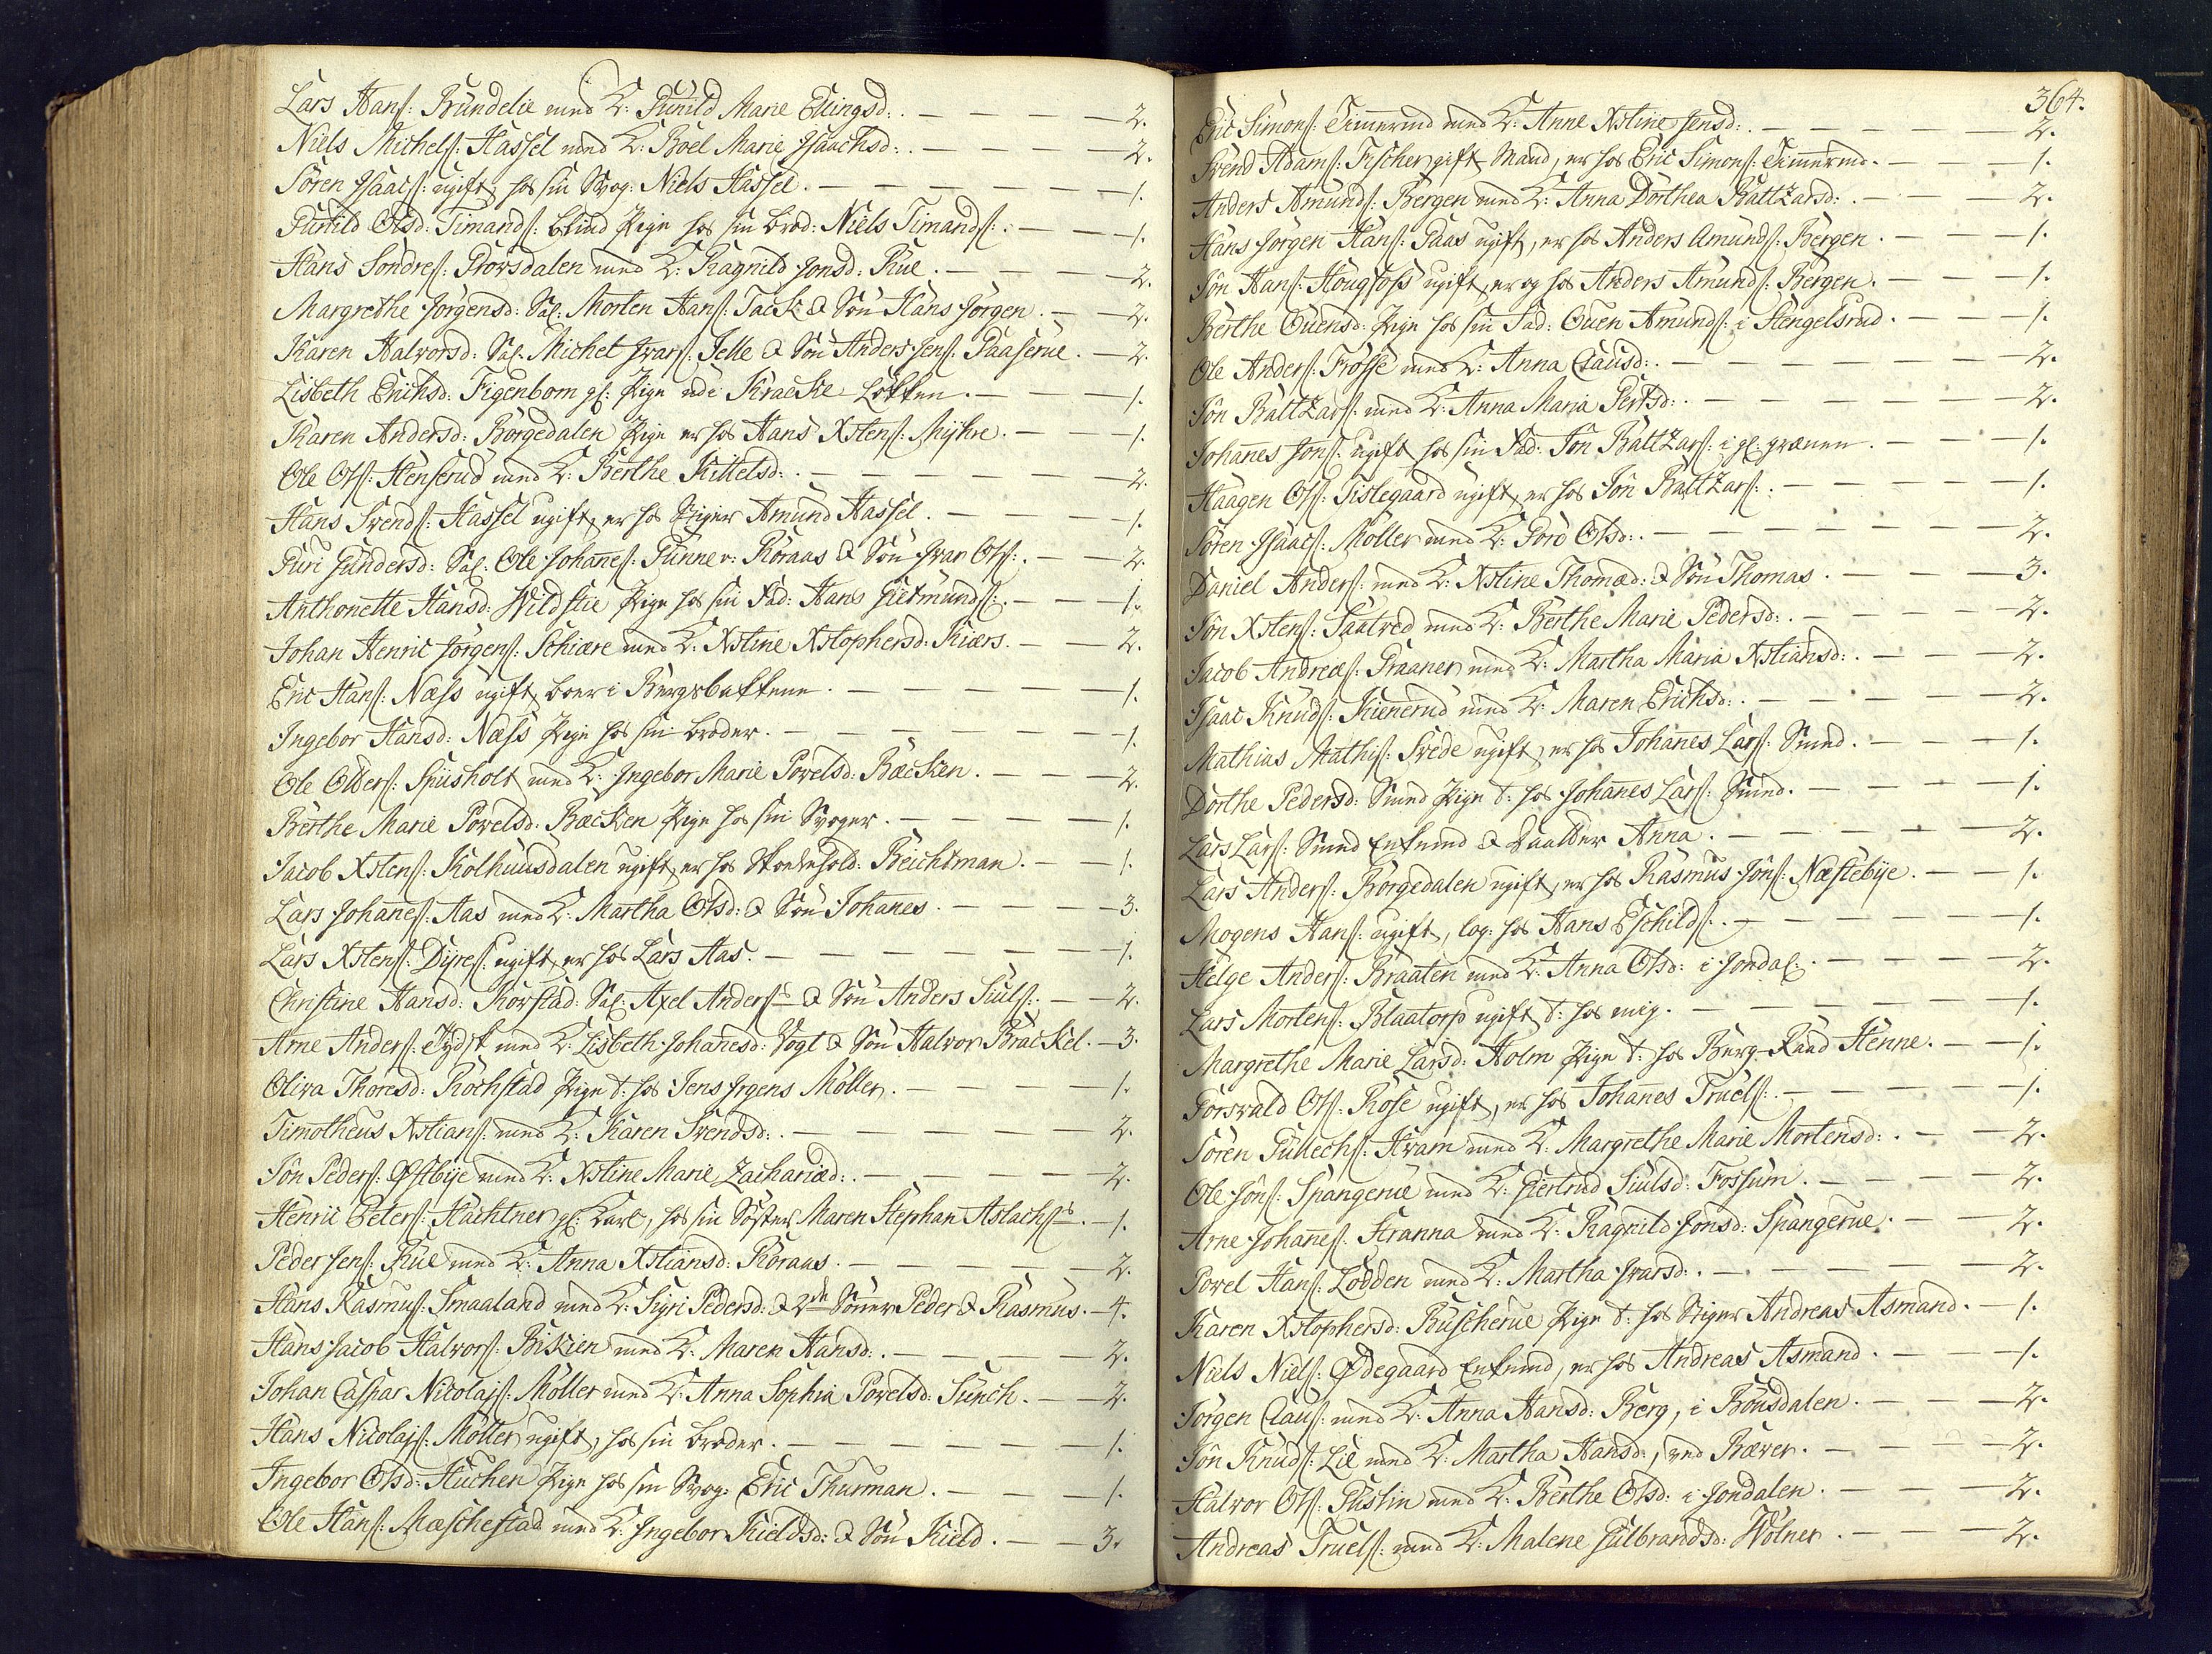 Lars Hanſ: Bundelie med K: Gunild Marie Ellingsd: . — — — — 2.
Niels Michelſ: Hassel med K: Boel Marie Isaachsd: . — — — — 2.
Sören Isaacſ: ugift, hos sin Svog: Niels Hassel. — — — — 1.
Gunild Olsd: Timandſ: blind Pige hos sin brod: Niels Timandſ: . — — 1.
Hans Sondreſ: Prowsdalen med K: Ragnild Jonsd: Rue. — — — 2.
Margrethe Jörgensd: Sal: Morten Hanſ: Tack & Sön Hans Jörgen. — — 2.
Karen Halvorsd: Sal. Michel Ivarſ: Jelle & Sön Anders Jenſ. Paaserue. — 2.
Lisbeth Erichsd: Figenbom gl: Pige udi Kracke Løkken. — — 1.
Karen Andersd: Borgedalen Pige er hos Hans Xstenſ: Myhre. — — 1.
Ole Olſ: Henserud med K: Berthe Kittelsd: . — — — — 2.
Hans Svendſ: Hassel ugift, er hos Stiger Amund Hassel. — — 1.
Guri Gundersd: Sal. Ole Johaneſ: Gunner: Koraas & Sön Ivar Olſ: . — — 2.
Anthonette Hansd: Wildstie Pige hos sin Fad: Hans Gutmundſ: . — — 1.
Johan Henric Jörgenſ: Schiære med K: Xstine Xstophersd: Kiærs. — — 2.
Eric Hanſ: Næss ugift, boer i Bergsbakkene. — — — — 1.
Ingebor Hansd: Næss Pige hos sin broder. — — — — 1.
Ole Olderſ: Spusholt med K: Ingebor Marie Povelsd: Bæcken. — — 2.
Berthe Marie Povelsd. Bæcken Pige hos sin Svoger. — — — 1.
Jacob Xstenſ: Kolhuusdalen ugift, er hos Reichtman. — — 1.
Lars Johaneſ: Aas med K: Martha Olsd: & Sön Johanes. — — — 3.
Lars Xstenſ: Dyreſ: ugift, er hos Lars Aas. — — — — 1.
Christine Hansd: Korstad: Sal: Axel Anderſ: & Sön Anders Siulſ: . — — 2.
Arne Anderſ: Tydsk med K: Lisbeth Johanesd: Vogt & Sön Halvor Brackel. — 3.
Oliva Thoresd: Röchstad Pige t: hos Jens Jrgens Möller. — — — 1.
Timotheus Xstianſ: med K: Karen Svendsd: . — — — — 2.
Jön Pederſ: Østbye med K: Xstine Marie Zachariæd: . — — — 2.
Henric Peterſ: Hachtner gl: Karl, hos sin Söster Maren Stephan Aslachſ. — 1.
Peder Jenſ: Rue med K: Anna Xstiansd: Koraas. — — — — 2.
Hans Rasmuſ: Smaaland med K: Siyri Pedersd: & 2de Sönner Peder & Rasmus. — 4.
Hans Jacob Halvorſ: Biskien med K: Maren Hansd: . — — — 2.
Johan Caspar Nicolajſ: Möller med K: Anna Sophia Povelsd: Sunch. — — 2.
Hans Nicolajſ: Möller ugift, hos sin broder. — — — — 1.
Ingebor Olsd: Huchen Pige hos sin Svog: Eric Thurman. — — — 1.
Ole Hanſ: Mæschestad med K: Ingebor Kieldsd: & Sön Kield. — — 3.
364.
Eric Simonſ: Timermd med K: Anne Xstine Jensd: . — — — — 2.
Svend Adamſ: Fischer gift Mand, er hos Eric Simonſ: Timermd. — — 1.
Anders Amundſ: Bergen med K: Anna Dorthea Baltzarsd: . — — 2.
Hans Jörgen Hanſ: Paas ugift, er hos Anders Amundſ: Bergen. — — 1.
Jön Hanſ: Hougfoss ugift, er og hos Anders Amundſ: Bergen. — — 1.
Berthe Ouensd: Pige hos sin Fad: Ouen Amundſ: i Hengelsrud. — — 1.
Ole Anderſ: Frosse med K: Anna Clausd: . — — — 2.
Jön Baltzarſ: med K: Anna Maria Pertsd: . — — — 2.
Johanes Jonſ: ugift hos sin Fad: Jön Baltzarſ: i gl: grænen. — — 1.
Haagen Olſ: Tislegaard ugift, er hos Jön Baltzarſ: . — — — 1.
Sören Isaacſ: Möller med K: Goro Olsd: . — — — — 2.
Daniel Anderſ: med K: Xstine Thomæd: & Sön Thomas. — — — 3.
Jön Xstenſ: Saatved med K: Berthe Marie Pedersd: . — — — 2.
Jacob Andreæſ: Praaner med K: Martha Maria Xstiansd: . — — 2.
Isaac Knudſ: Kienerud med K: Maren Erichsd: . — — — 2.
Mathias Mathiſ: Svede ugift, er hos Johanes Larſ: Smed. — — 1.
Dorthe Pedersd: Smed Pige t: hos Johanes Larſ: Smed. — — 1.
Lars Larſ: Smed Enkemd & Daatter Anna. — — — — 2.
Lars Anderſ: Borgedalen ugift, er hos Rasmus Jönſ: Næstebye. — — 1.
Mogens Hanſ: ugift, log: hos Hans Eschildſ: . — — — 1.
Helge Anderſ: Braaten med K: Anna Olsd: i Jondal: . — — — 2.
Lars Mortenſ: Blaatorp ugift t: hos mig. — — — — 1.
Margrethe Marie Larsd: Holm Pige t: hos Berg-Raad Henne. — — 1.
Torsvald Olſ: Rose ugift, er hos Johanes Truelſ: . — — — 1.
Sören Gullechſ: Hvam med K: Margrethe Marie Mortensd: . — — 2.
Ole Jönſ: Spangerue med K: Giertrud Siulsd: Fossum. — — — 2.
Arne Johaneſ: Stranna med K: Ragnild Jonsd: Spangerue. — — 2.
Povel Hanſ: Lodden med K: Martha Ivarsd: . — — — — 2.
Karen Xstophersd: Buscherue Pige t: hos Stiger Andreas Asmand. — — 1.
Niels Nielſ: Ødegaard Enkemd, er hos Andreas Asmand. — — — 1.
Jörgen Clauſ: med K: Anna Hansd: Berg, i Böusdalen. — — — 2.
Jön Knudſ: Lie med K: Martha Hansd:, ved Bæver. — — — 2.
Halvor Olſ: Pustin med K: Berthe Olsd: i Jondalen. — — — 2.
Andreas Truelſ: med K: Malene Gulbrandsd: Wolner. — — — 2.